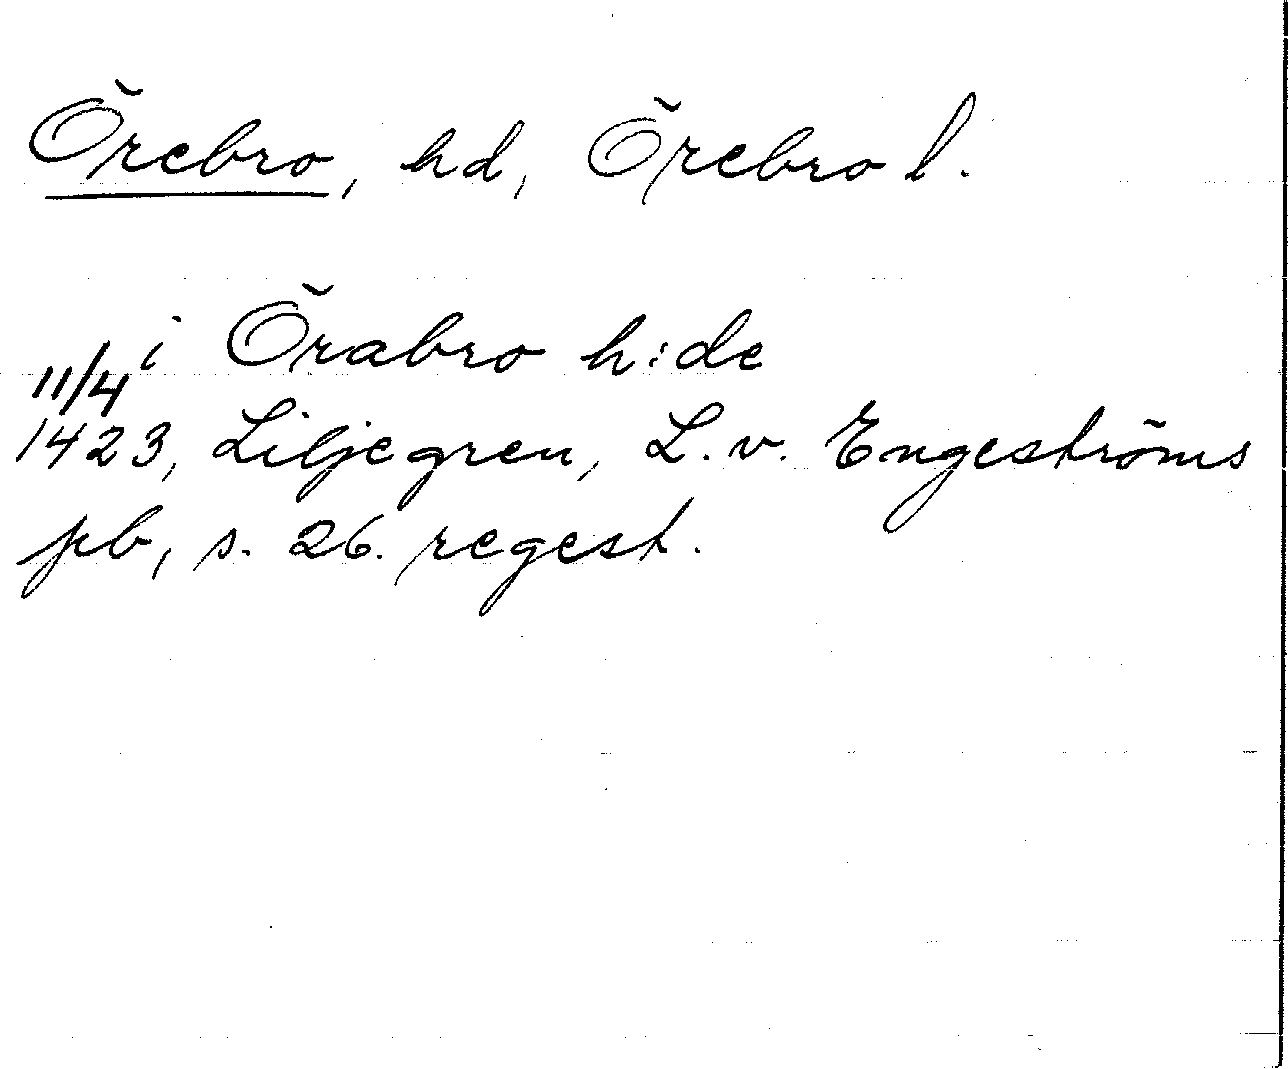 Örebro, hd, Örebro l.
i Örabro h:de
11/4
1423, Liljegren, L. v. Engeströms
pb, s. 26. regest.